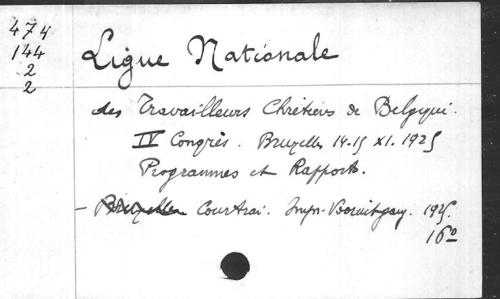 474
144
2
2
Ligue Nationale
des Travailleurs Chrétiens de Belgique.
IV Congrès. Bruxelles 14-15 XI. 1925
Programmes et Rapports.
- Bruxelles Courtrai. Impr. Vooruitgang. 1925.
16°